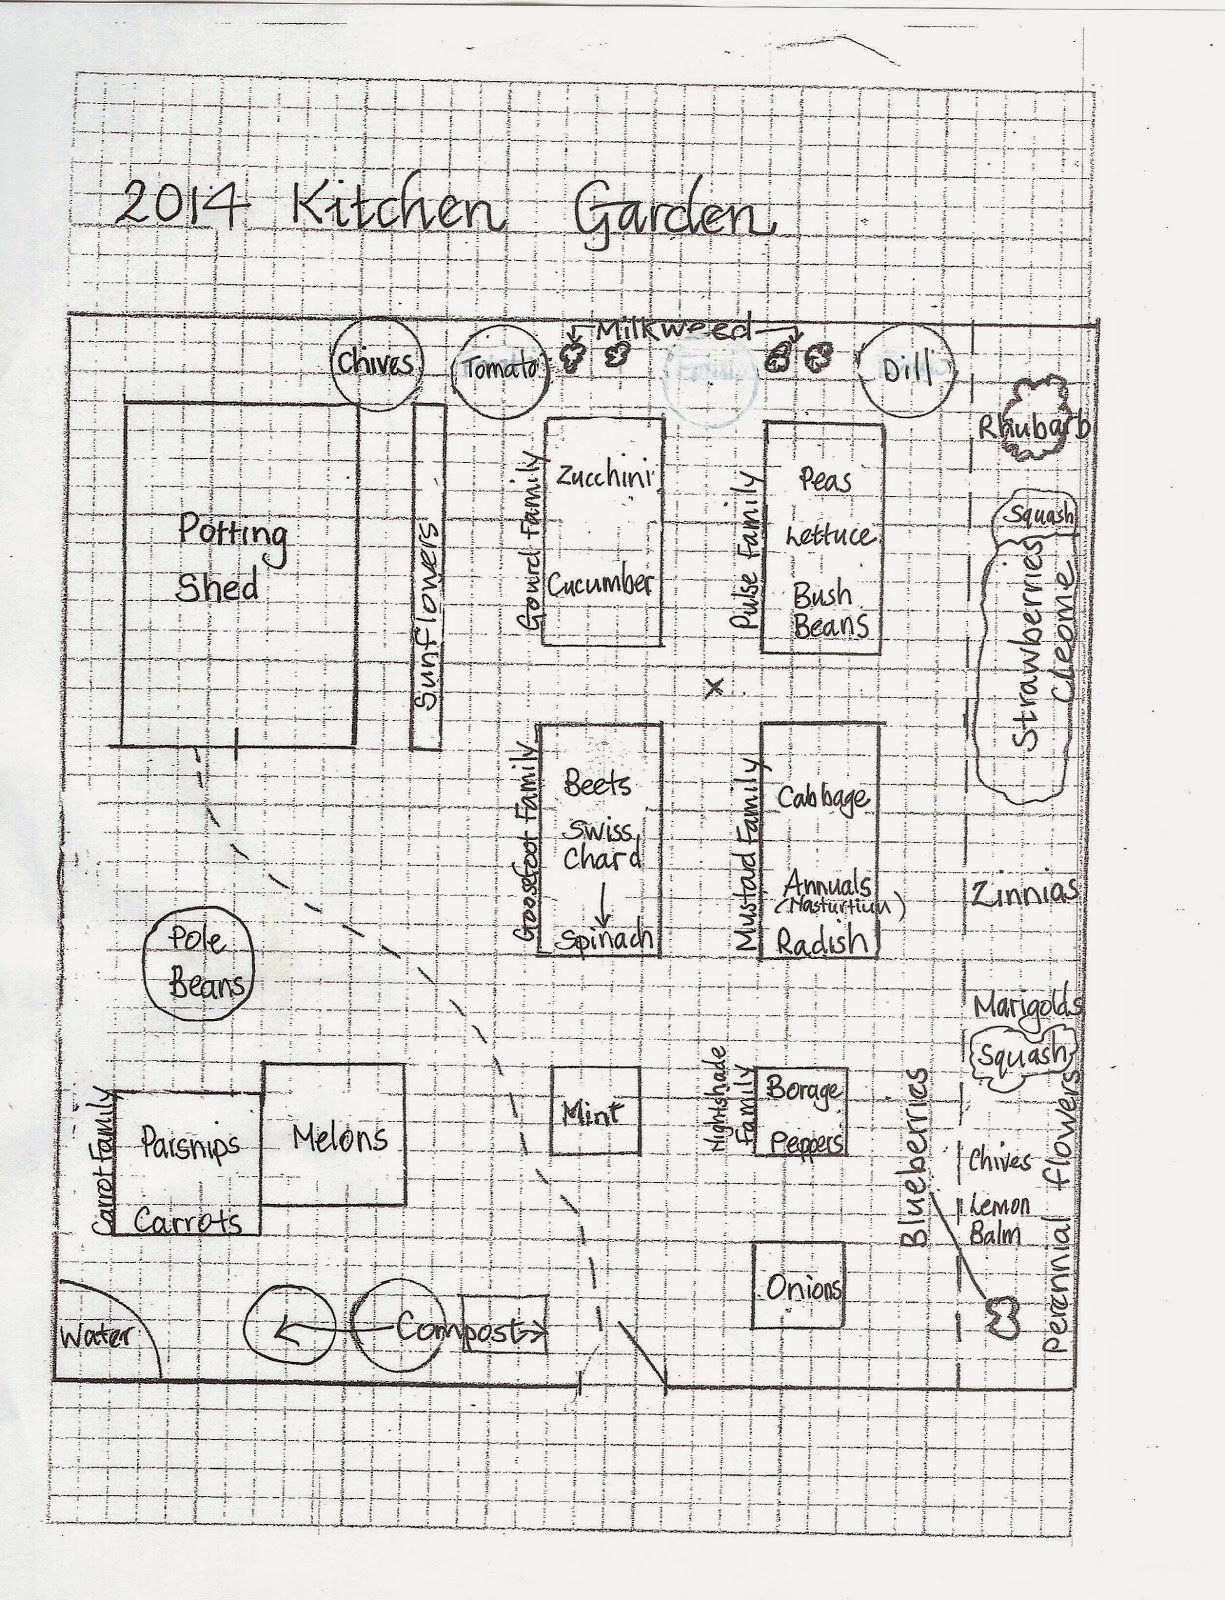 2014 Kitchen Garden
Milkweed
Chives
Tomato
Dill
Rhubarb
Potting
Shed
Sunflowers
Gourd Family
Zucchini
Cucumber
Pulse Family
Peas
Lettuce
Bush
Beans
Squash
Strawberries
Cleome
x
Goosefoot Family
Beets
Swiss
Chard
Spinach
Mustard Family
Cabbage
Annuals
(Nasturtium)
Radish
Zinnias
Pole
Beans
Marigolds
Squash
Carrot Family
Parsnips
Carrots
Melons
Mint
Nightshade
Family
Borage
Peppers
Blueberrias
Chives
Lemon
Balm
Perennial flowers
Onions
Water
Compost